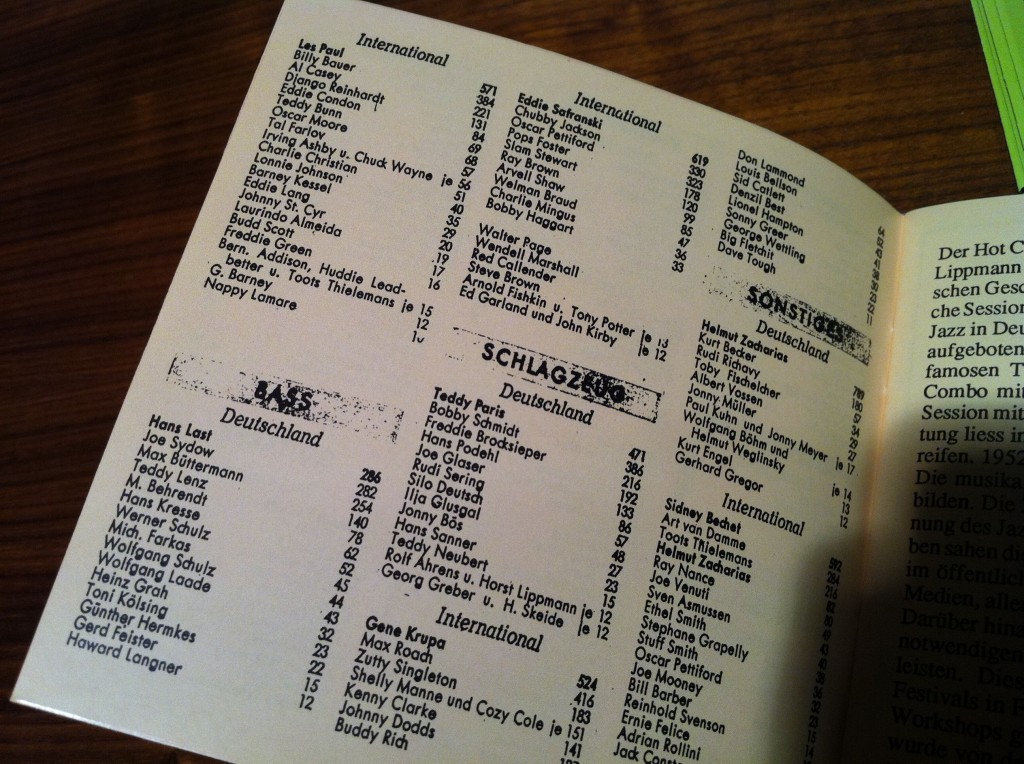 International
Les Paul 571
Billy Bauer 384
Al Casey 221
Django Reinhardt 131
Eddie Condon 84
Teddy Bunn 69
Oscar Moore 68
Tal Farlov 57
Irving Ashby u. Chuck Wayne je 56
Charlie Christian 51
Lonnie Johnson 40
Barney Kessel 35
Eddie Lang 29
Johnny St. Cyr 20
Laurindo Almeida 19
Budd Scott 17
Freddie Green 16
Bern. Addison, Huddie Lead-
better u. Toots Thielemans je 15
G. Barney 12
Nappy Lamare
BASS
Deutschland
Hans Last 286
Joe Sydow 282
Max Büttermann 254
Teddy Lenz 140
M. Behrendt 78
Hans Kresse 62
Werner Schulz 52
Mich. Farkas 45
Wolfgang Schulz 44
Wolfgang Laade 43
Heinz Grah 32
Toni Kölsing 23
Günther Hermkes 22
Gerd Feister 15
Haward Langner 12
International
Eddie Safranski 619
Chubby Jackson 330
Oscar Pettiford 323
Pops Foster 178
Slam Stewart 120
Ray Brown 99
Arvell Shaw 85
Welman Braud 47
Charlie Mingus 36
Bobby Haggart 33
Walter Page
Wendell Marshall
Red Callender
Steve Brown
Arnold Fishkin u. Tony Potter je 13
Ed Garland und John Kirby je 12
SCHLAGZEUG
Deutschland
Teddy Paris 471
Bobby Schmidt 386
Freddie Brocksieper 216
Hans Podehl 192
Joe Glaser 133
Rudi Sering 86
Silo Deutsch 57
Ilja Glusgal 48
Jonny Bös 27
Hans Sanner 23
Teddy Neubert 15
Rolf Ahrens u. Horst Lippmann je 12
Georg Greber u. H. Skeide je 12
International
Gene Krupa 524
Max Roach 416
Zutty Singleton 183
Shelly Manne und Cozy Cole je 151
Kenny Clarke 141
Johnny Dodds
Buddy Rich
Don Lammond
Louis Bellson
Sid Catlett
Denzil Best
Lionel Hampton
Sonny Greer
George Wettling
Big Fletchit
Dave Tough
SONSTIGES
Deutschland
Helmut Zacharias
Kurt Becker 180
Rudi Richavy 57
Toby Fischelcher 34
Albert Vossen 29
Jonny Müller 27
Paul Kuhn und Jonny Meyer je 17
Wolfgang Böhm und
Helmut Weglinsky je 14
Kurt Engel 13
Gerhard Gregor 12
International
Sidney Bechet 592
Art van Damme 284
Toots Thielemans 216
Helmut Zacharias
Ray Nance
Joe Venuti
Sven Asmussen
Ethel Smith
Stephane Grapelly
Stuff Smith
Oscar Pettiford
Joe Mooney
Bill Barber
Reinhold Svenson
Ernie Felice
Adrian Rollini
Jack
Der Hot C
Lippmann
schen Gesc
che Session
Jazz in Deu
aufgeboten
famosen T
Combo mi
Session mit
tung liess in
reifen. 1952
Die musika
bilden. Die
nung des Jaz
ben sahen di
im öffentlic
Medien, alle
Darüber hina
notwendigen
leisten. Dies
Festivals in F
Workshops g
wurde von d